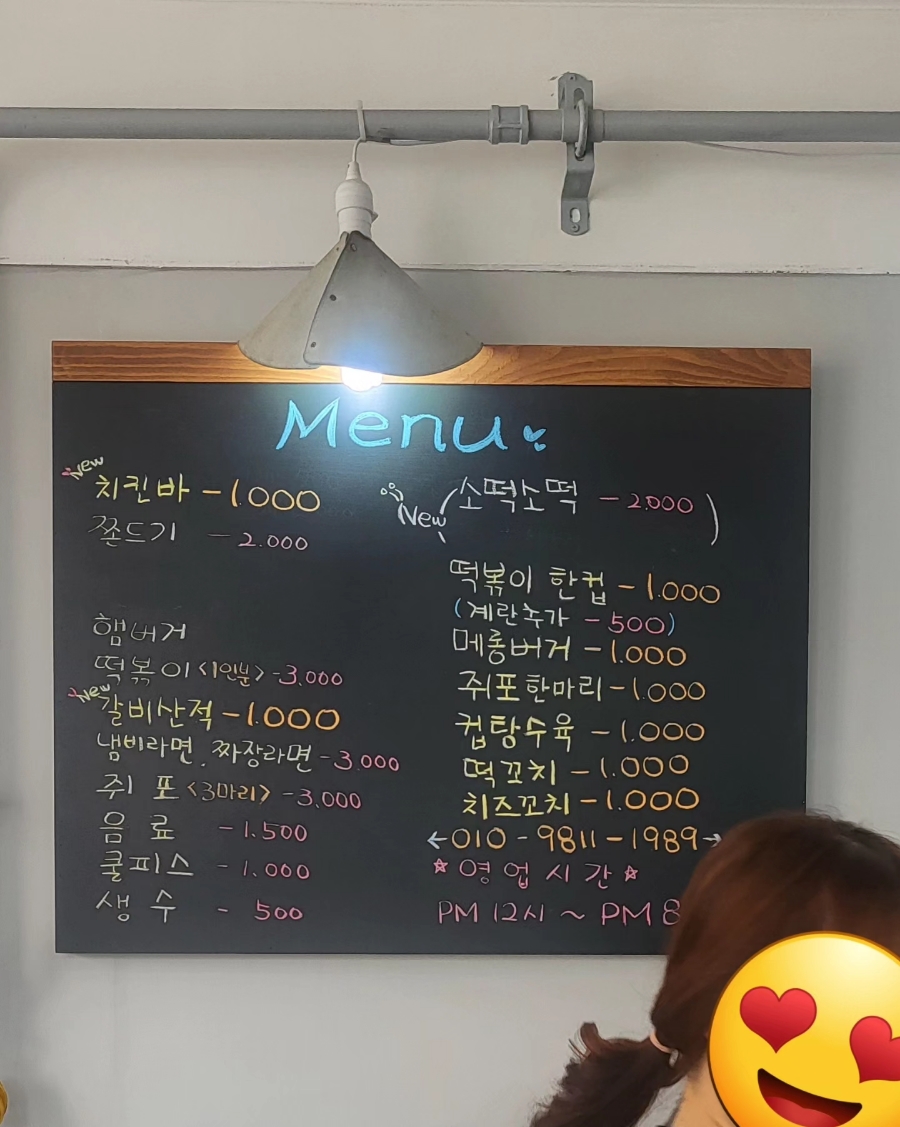 Menu
New
치킨바 - 1.000
쫀드기 - 2.000
햄버거
떡볶이 <1인분> - 3.000
New
갈비산적 - 1.000
냄비라면, 짜장라면 - 3.000
쥐 포 <3마리> - 3.000
음 료 - 1.500
쿨피스 - 1.000
생 수 - 500
New
소떡소떡 - 2.000
떡볶이 한컵 - 1.000
(계란추가 - 500)
메롱버거 - 1.000
쥐포한마리 - 1.000
컵탕수육 - 1.000
떡꼬치 - 1.000
치즈꼬치 - 1.000
←010 - 9811 - 1989→
☆영 업 시 간☆
PM 12시 ~ PM 8